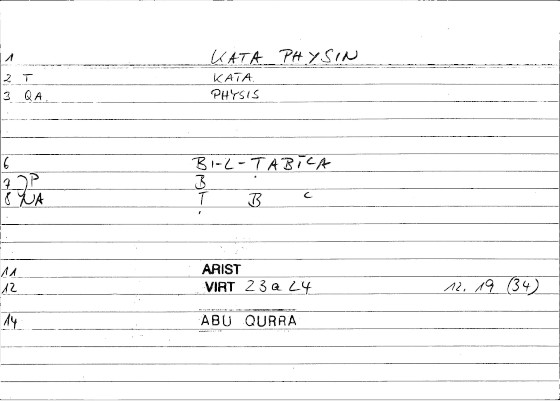 1 KATA PHYSIN
2 T KATA
3 QA. PHYSIS
6 BI-L-TABĪCA
7 P B
8 NA T B C
11 ARIST
12 VIRT 23 a 24 12, 19 (34)
14 ABU QURRA